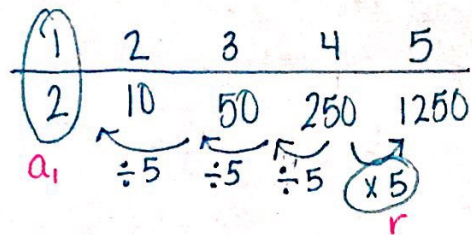 1 2 3 4 5
2 10 50 250 1250
a₁ ÷5 ÷5 ÷5 ×5
r